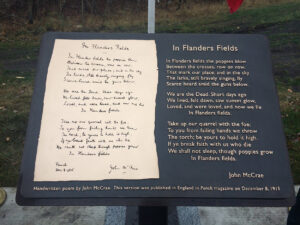 In Flanders Fields
In Flanders fields the poppies blow
Between the crosses, row on row,
That mark our place; and in the sky
The larks, still bravely singing, fly
Scarce heard amid the guns below.
We are the Dead. Short days ago
We lived, felt dawn, saw sunset glow,
Loved, and were loved, and now we lie
In Flanders fields.
Take up our quarrel with the foe:
To you from failing hands we throw
The torch; be yours to hold it high.
If ye break faith with us who die
We shall not sleep, though poppies grow
In Flanders fields.
Punch
Dec 8 1915
John McCrae
In Flanders Fields
In Flanders fields the poppies blow
Between the crosses, row on row,
That mark our place; and in the sky
The larks, still bravely singing, fly
Scarce heard amid the guns below.
We are the Dead. Short days ago
We lived, felt dawn, saw sunset glow,
Loved, and were loved, and now we lie
In Flanders fields.
Take up our quarrel with the foe:
To you from failing hands we throw
The torch; be yours to hold it high.
If ye break faith with us who die
We shall not sleep, though poppies grow
In Flanders fields.
John McCrae
Handwritten poem by John McCrae. This version was published in England in Punch magazine on December 8, 1915